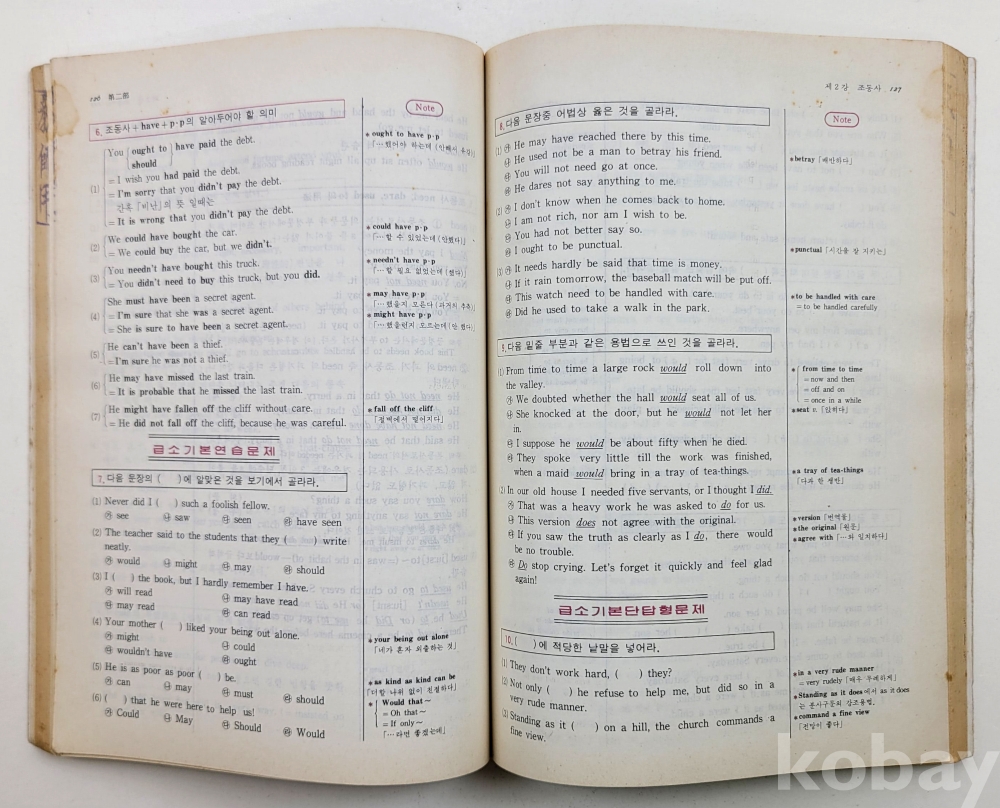 126 第二部
6. 조동사+have+p·p의 알아두어야 할 의미
You ought to / should have paid the debt.
= I wish you had paid the debt.
(1) = I'm sorry that you didn't pay the debt.
간혹「비난」의 뜻 일때는
= It is wrong that you didn't pay the debt.
(2) We could have bought the car.
= We could buy the car, but we didn't.
(3) You needn't have bought this truck.
= You didn't need to buy this truck, but you did.
She must have been a secret agent.
(4) = I'm sure that she was a secret agent.
= She is sure to have been a secret agent.
(5) He can't have been a thief.
= I'm sure he was not a thief.
(6) He may have missed the last train.
= It is probable that he missed the last train.
(7) He might have fallen off the cliff without care.
= He did not fall off the cliff, because he was careful.
급소기본연습문제
7. 다음 문장의 ( )에 알맞은 것을 보기에서 골라라.
(1) Never did I ( ) such a foolish fellow.
㉮ see ㉯ saw ㉰ seen ㉱ have seen
(2) The teacher said to the students that they ( ) write
neatly.
㉮ would ㉯ might ㉰ may ㉱ should
(3) I ( ) the book, but I hardly remember I have.
㉮ will read ㉯ may have read
㉰ may read ㉱ can read
(4) Your mother ( ) liked your being out alone.
㉮ might ㉯ could
㉰ wouldn't have ㉱ ought
(5) He is as poor as poor ( ) be.
㉮ can ㉯ may ㉰ must ㉱ should
(6) ( ) that he were here to help us!
㉮ Could ㉯ May ㉰ Should ㉱ Would
Note
* ought to have p·p
* could have p·p
「…할 수 있었는데(안했다)」
* needn't have p·p
「…할 필요 없었는데(했다)」
* may have p·p
「…했을지 모른다(과거의 추측)」
* might have p·p
「…했을런지 모르는데(안 했다)」
* fall off the cliff
「절벽에서 떨어지다」
* your being out alone
「네가 혼자 외출하는 것」
* as kind as kind can be
「더할 나위 없이 친절하다」
* Would that~
= Oh that~
= If only~
「…라면 좋겠는데」
제2강 조동사 127
8. 다음 문장중 어법상 옳은 것을 골라라.
(1) ㉮ He may have reached there by this time.
㉯ He used not be a man to betray his friend.
㉰ You will not need go at once.
㉱ He dares not say anything to me.
(2) ㉮ I don't know when he comes back to home.
㉯ I am not rich, nor am I wish to be.
㉰ You had not better say so.
㉱ I ought to be punctual.
(3) ㉮ It needs hardly be said that time is money.
㉯ If it rain tomorrow, the baseball match will be put off.
㉰ This watch need to be handled with care.
㉱ Did he used to take a walk in the park.
9. 다음 밑줄 부분과 같은 용법으로 쓰인 것을 골라라.
(1) From time to time a large rock would roll down into
the valley.
㉮ We doubted whether the hall would seat all of us.
㉯ She knocked at the door, but he would not let her
in.
㉰ I suppose he would be about fifty when he died.
㉱ They spoke very little till the work was finished,
when a maid would bring in a tray of tea-things.
(2) In our old house I needed five servants, or I thought I did.
㉮ That was a heavy work he was asked to do for us.
㉯ This version does not agree with the original.
㉰ If you saw the truth as clearly as I do, there would
be no trouble.
㉱ Do stop crying. Let's forget it quickly and feel glad
again!
급소기본단답형문제
10. ( )에 적당한 낱말을 넣어라.
(1) They don't work hard, ( ) they?
(2) Not only ( ) he refuse to help me, but did so in a
very rude manner.
(3) Standing as it ( ) on a hill, the church commands a
fine view.
Note
* betray「배반하다」
* punctual「시간을 잘 지키는」
* to be handled with care
= to be handled carefully
* from time to time
= now and then
= off and on
= once in a while
* seat v.「앉히다」
* a tray of tea-things
「다과 한 쟁반」
* version「번역물」
* the original「원문」
* agree with「…와 일치하다」
* in a very rude manner
= very rudely「매우 무례하게」
* Standing as it does에서 as it does
는 분사구문의 강조용법.
* command a fine view
「전망이 좋다」
kobay